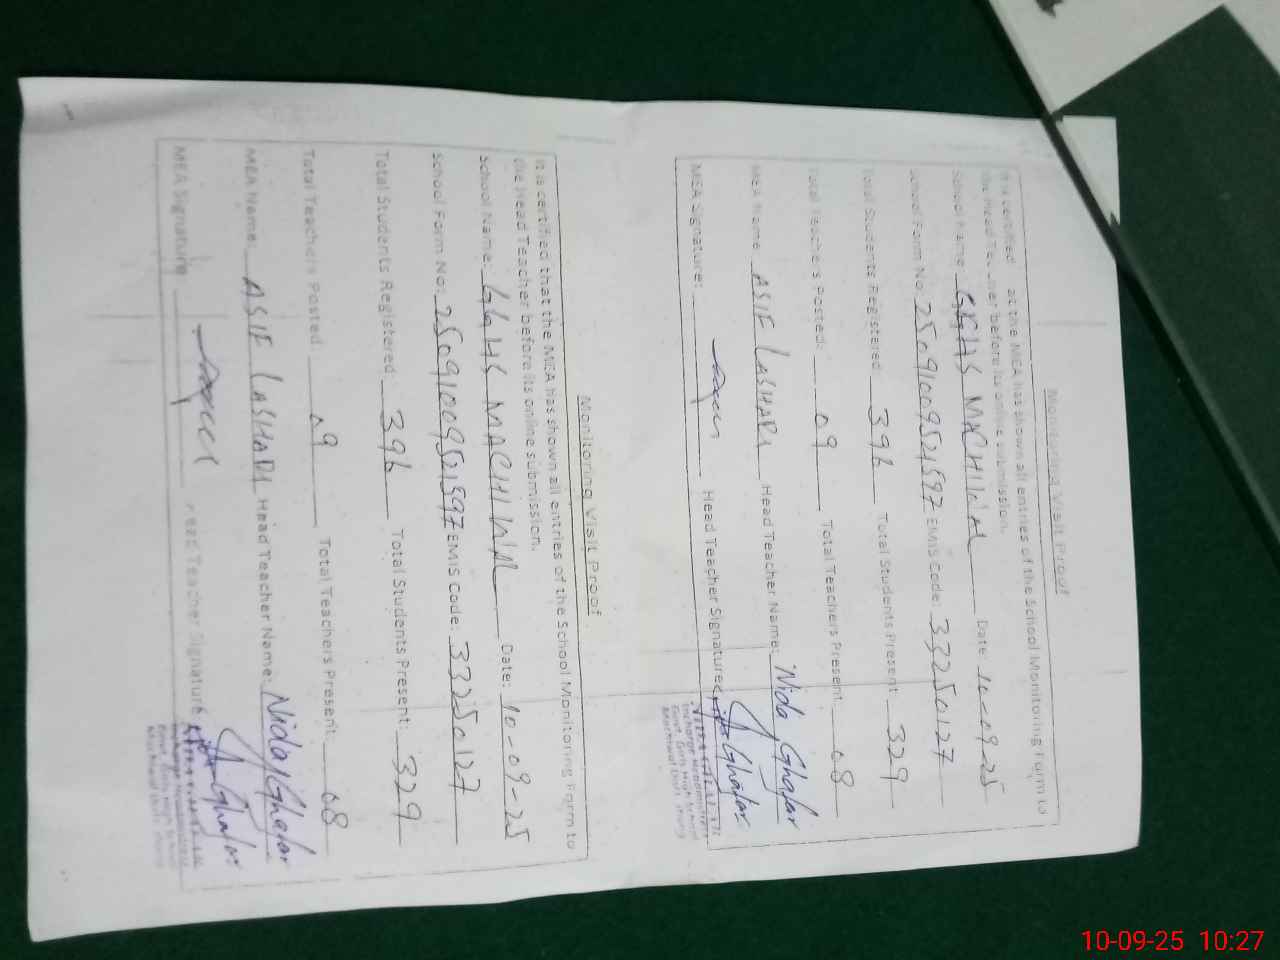 Monitoring Visit Proof
It is certified at the MEA has shown all entries of the School Monitoring Form to
the Head Teacher before its online submission.
School Name GGHS MACHIWAL Date: 10-09-25
School Form No: 25091009521597 EMIS Code: 33250127
Total Students Registered 396 Total Students Present 329
Total Teachers Posted: 09 Total Teachers Present: 08
MEA Name ASIF LASHARI Head Teacher Name: Nida Ghafar
MEA Signature: Head Teacher Signature: Ghafar
Incharge Headmistress
Govt. Girls High School
Machiwal Distt.
Monitoring Visit Proof
It is certified that the MEA has shown all entries of the School Monitoring Form to
the Head Teacher before its online submission.
School Name: GGHS MACHIWAL Date: 10-09-25
School Form No: 25091009521597 EMIS Code: 33250127
Total Students Registered: 396 Total Students Present: 329
Total Teachers Posted 09 Total Teachers Present: 08
MEA Name: ASIF LASHARI Head Teacher Name: Nida Ghafar
MEA Signature Head Teacher Signature Ghafar
Incharge Headmistress
Govt. Girls High School
10-09-25 10:27